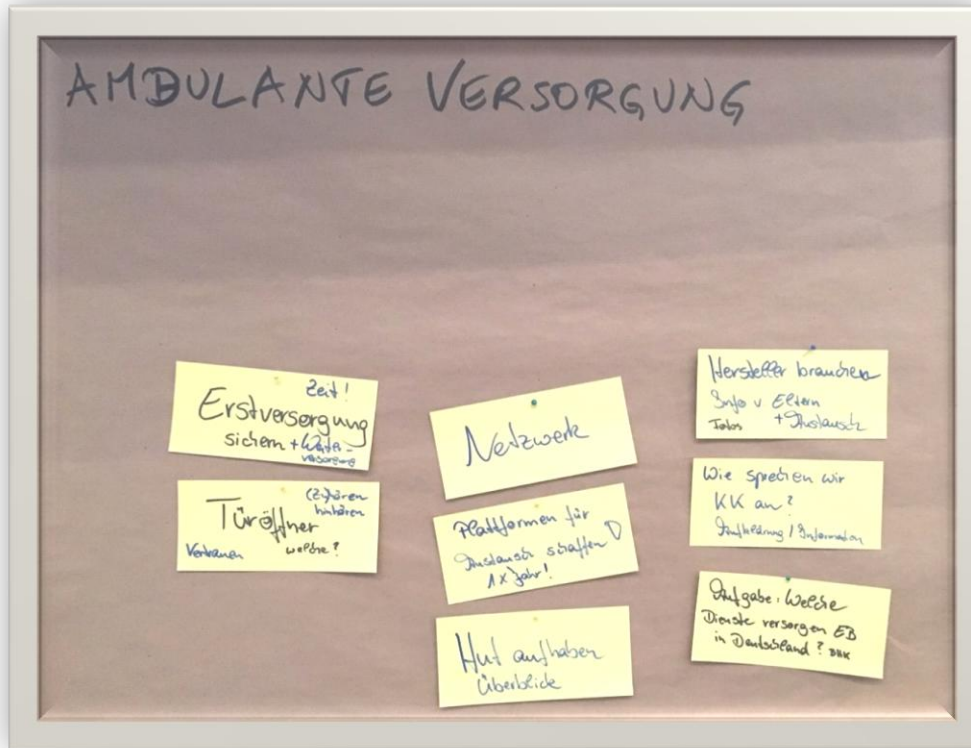 AMBULANTE VERSORGUNG
Zeit!
Erstversorgung
sichern + Weiter-
versorgung
(Zuhören
hinhören
Türöffner
Vertrauen welche?
Netzwerk
Plattformen für
Austausch schaffen
1x Jahr!
Hut aufhaben
Überblick
Hersteller brauchen
Info v Eltern
Infos + Austausch
Wie sprechen wir
KK an?
Aufklärung / Information
Aufgabe: Welche
Dienste versorgen EB
in Deutschland?